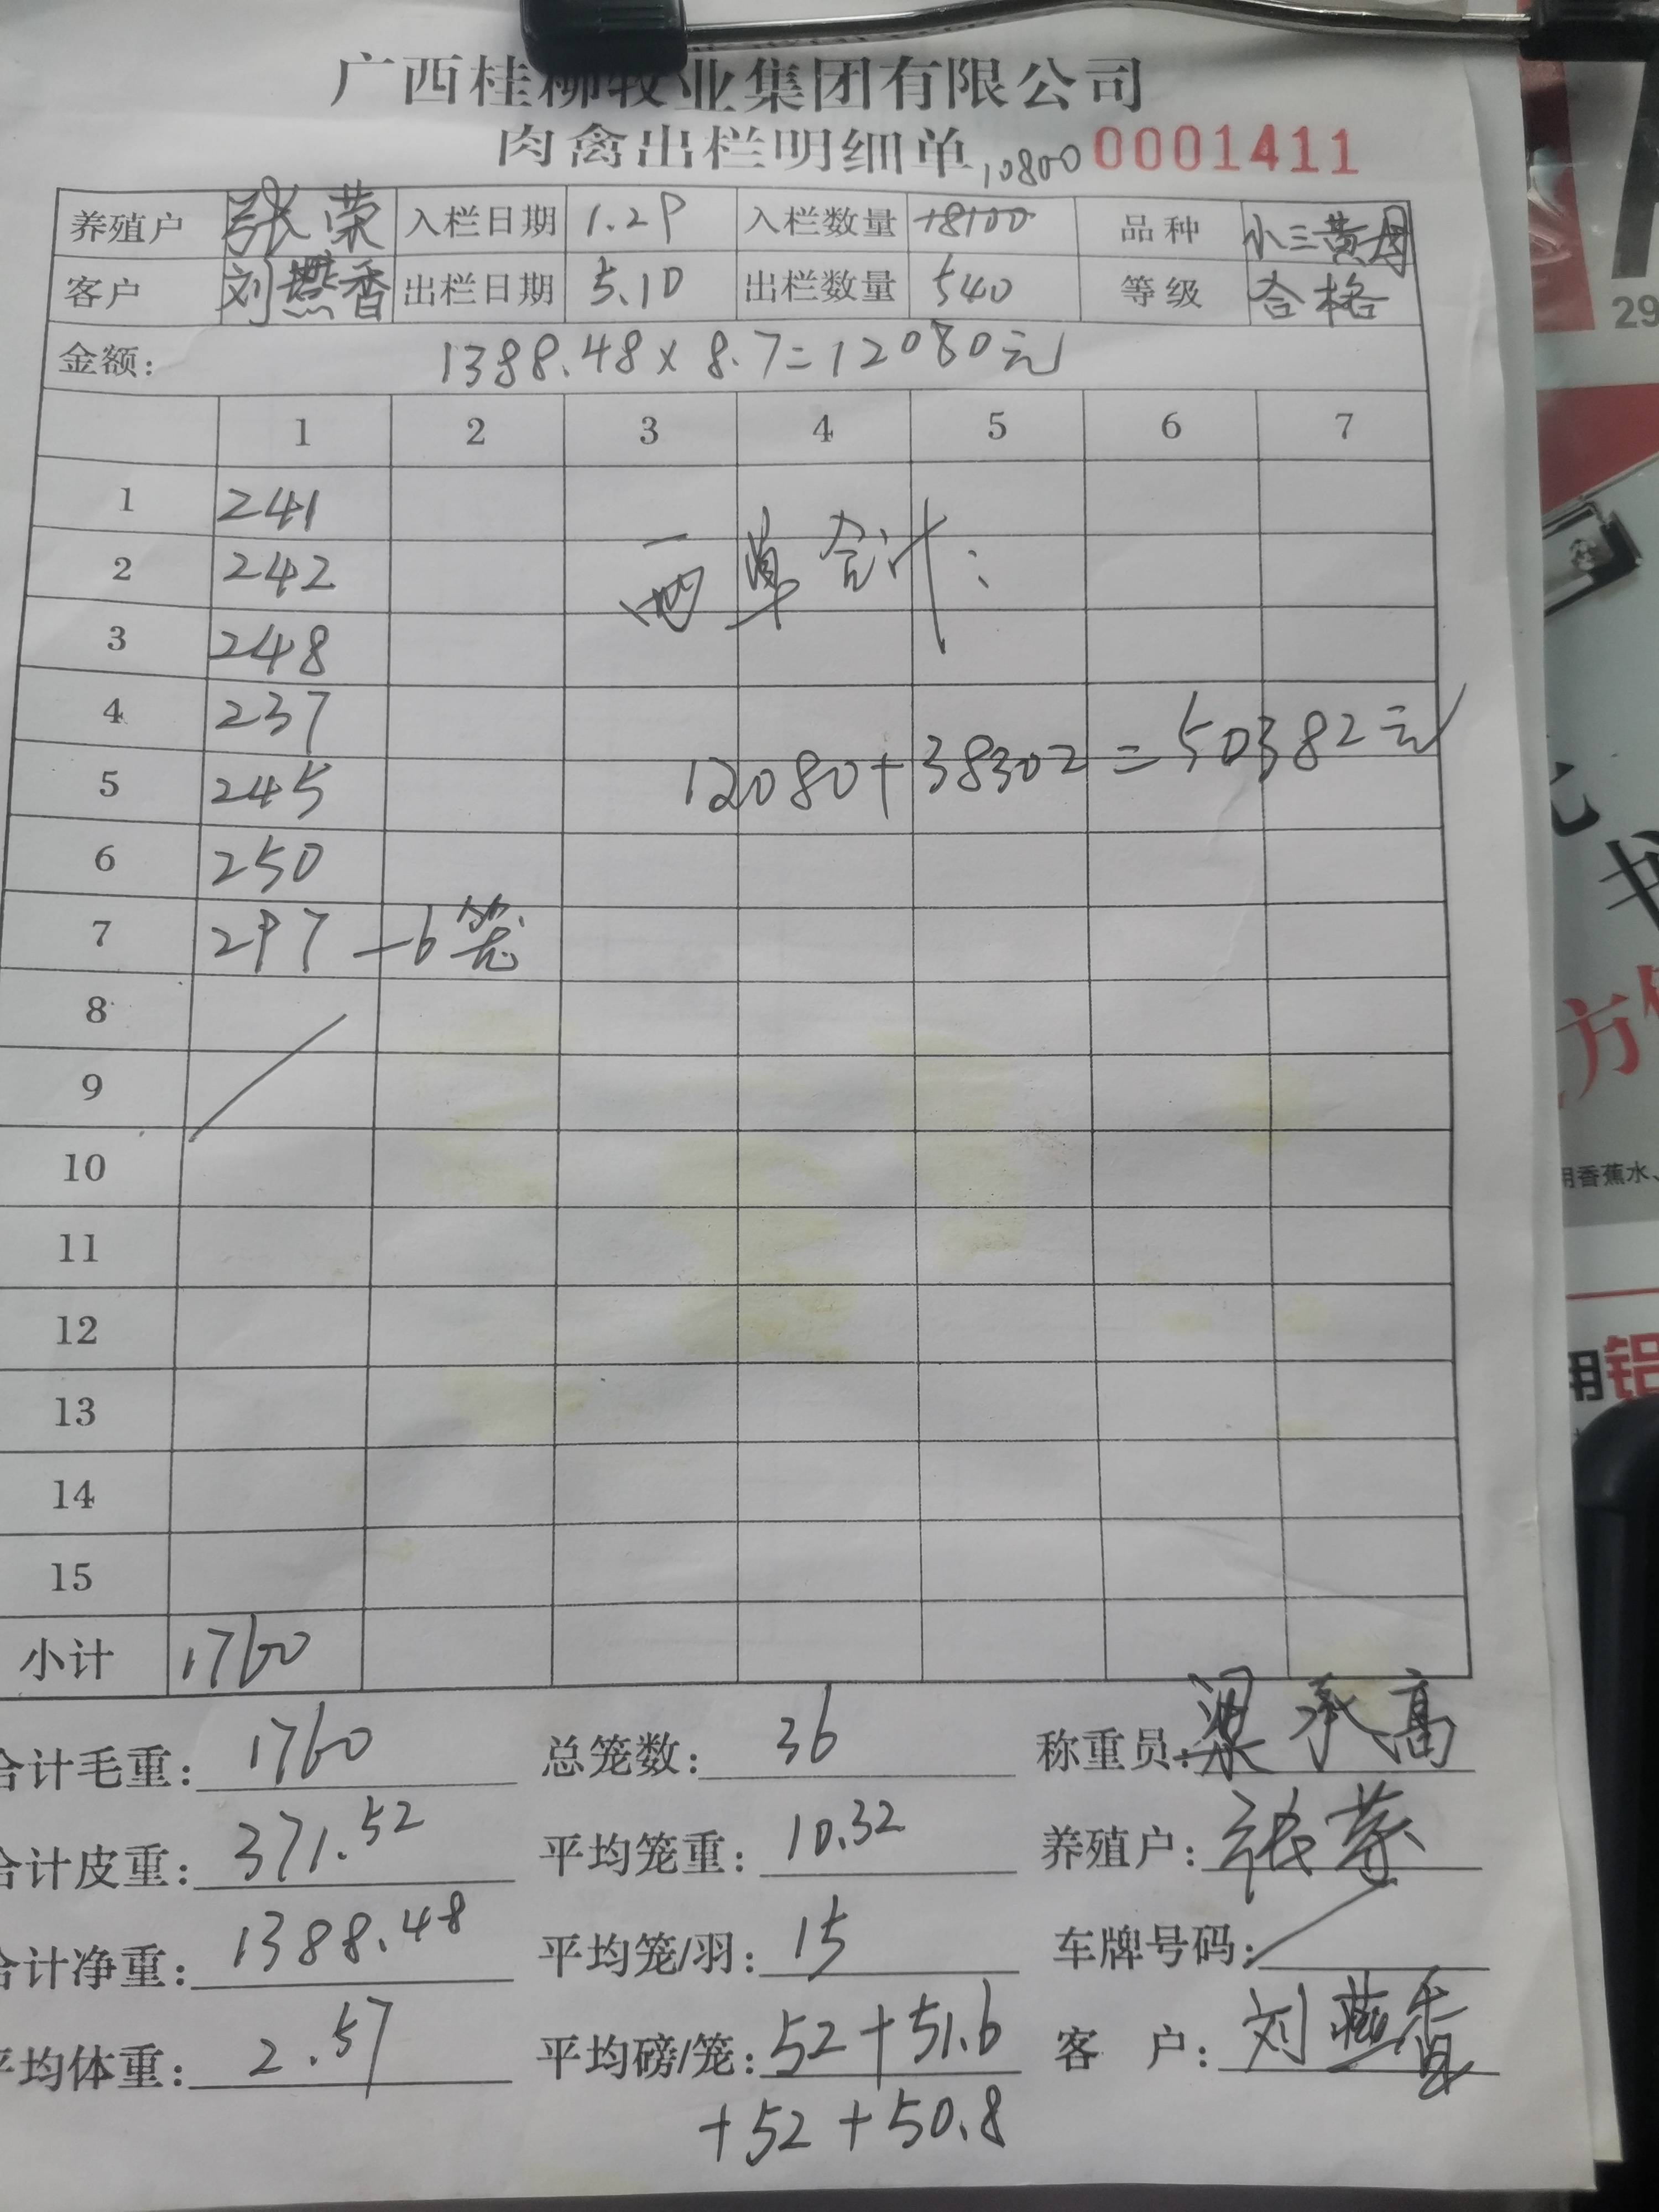 广西桂柳牧业集团有限公司
肉禽出栏明细单 10800 0001411
养殖户 张荣 入栏日期 1.29 入栏数量 18100 品种 小三黄母
客户 刘燕香 出栏日期 5.10 出栏数量 540 等级 合格
金额: 1388.48×8.7=12080元
1 2 3 4 5 6 7
1 241
2 242
3 248
4 237
5 245
6 250
7 297 —6笼
8
9
10
11
12
13
14
15
两单合计:
12080+38302=50382元
小计 1760
合计毛重: 1760 总笼数: 36 称重员: 梁承高
合计皮重: 371.52 平均笼重: 10.32 养殖户: 张荣
合计净重: 1388.48 平均笼/羽: 15 车牌号码:
平均体重: 2.57 平均磅/笼: 52+51.6 客 户: 刘燕香
+52+50.8
29
书
方
用香蕉水、
用铝